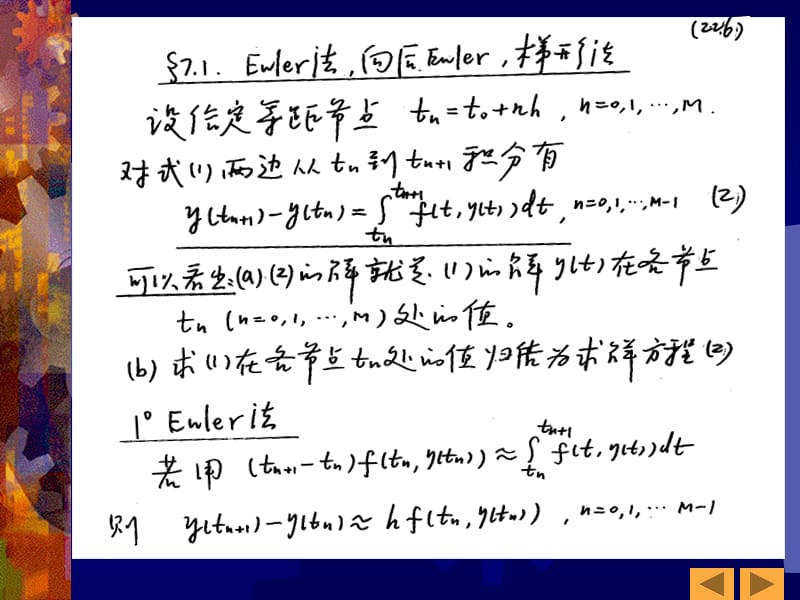 (226)
§7.1. Euler法,向后Euler,梯形法
设给定等距节点 tₙ=t₀+nh, n=0,1,…,M.
对式(1)两边从tₙ到tₙ₊₁积分有
y(tₙ₊₁)-y(tₙ)=∫_{tₙ}^{tₙ₊₁} f(t,y(t))dt, n=0,1,…,M-1 (2)
可以看出:(a)(2)的解就是(1)的解y(t)在各节点
tₙ(n=0,1,…,M)处的值。
(b) 求(1)在各节点tₙ处的值归结为求解方程(2)
1° Euler法
若用 (tₙ₊₁-tₙ)f(tₙ,y(tₙ))≈∫_{tₙ}^{tₙ₊₁} f(t,y(t))dt
则 y(tₙ₊₁)-y(tₙ)≈hf(tₙ,y(tₙ)), n=0,1,…M-1